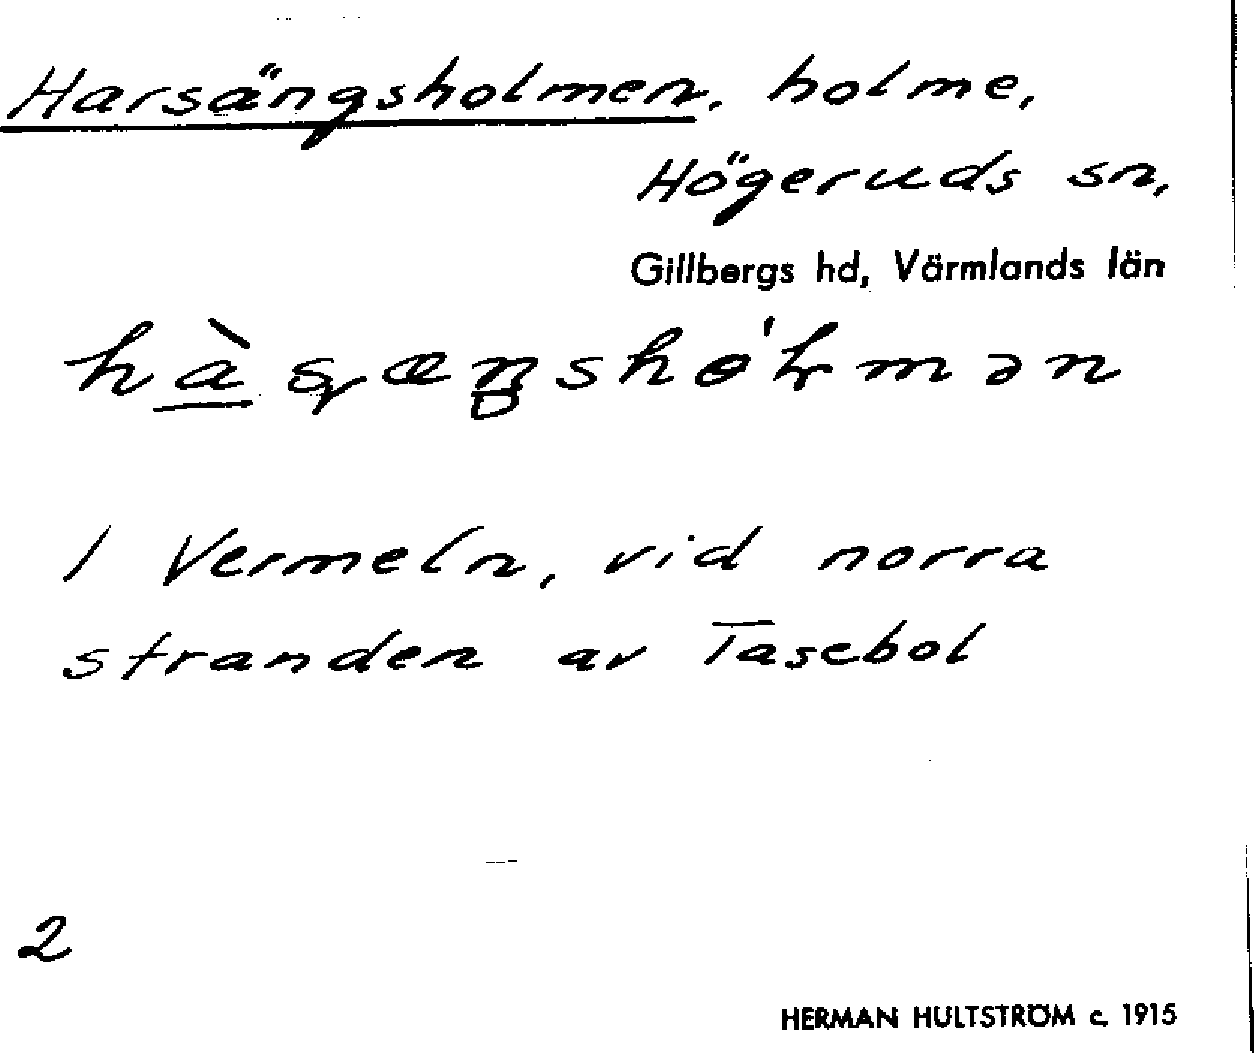 Harsängsholmen, holme,
Högeruds sn,
Gillbergs hd, Värmlands län
I Vermeln, vid norra
stranden av Tasebol
2
HERMAN HULTSTRÖM c. 1915